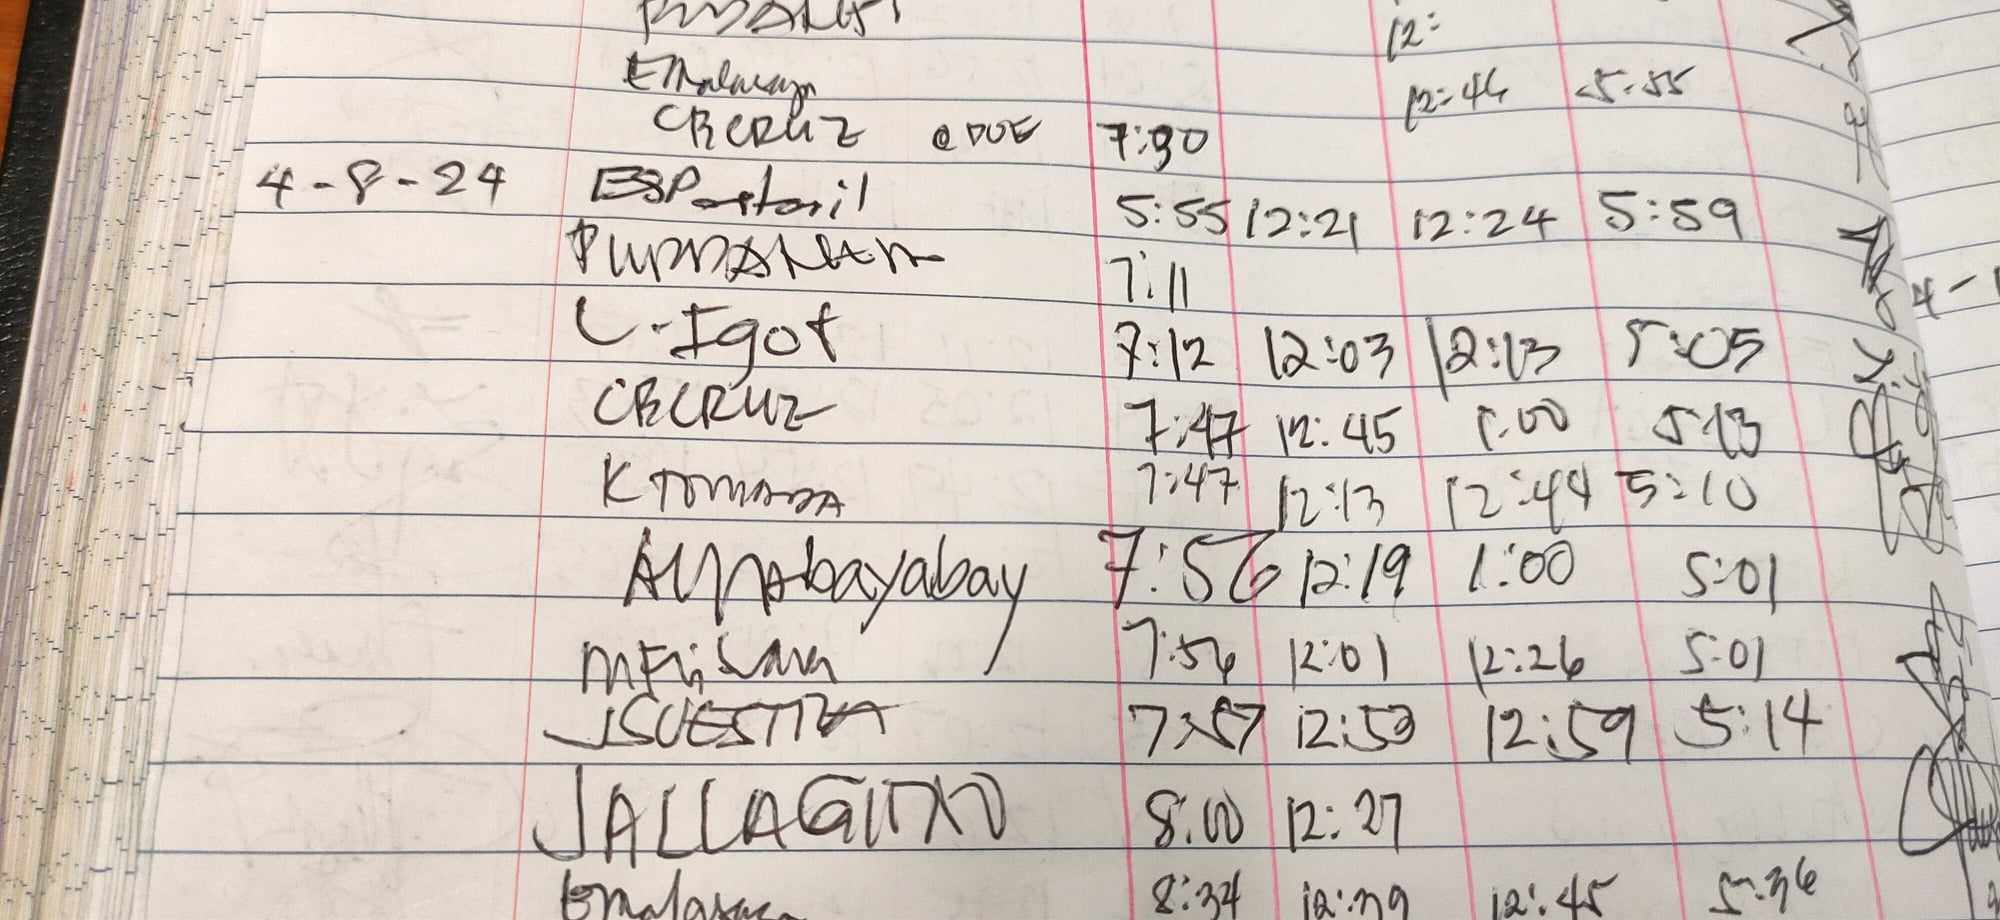 12:
EMalasaga 12:46 5:55
CRCRUZ @ DUE 7:30
4-8-24 ESPastoril 5:55 12:21 12:24 5:59
7:11
L-Igot 7:12 12:03 12:13 5:05
CRCRUZ 7:47 12:45 1:00 5:13
K TOMADA 7:47 12:13 12:44 5:10
ALMabayabay 7:56 12:19 1:00 5:01
7:56 12:01 12:26 5:01
JSCUESTIZA 7:57 12:53 12:59 5:14
8:00 12:27
8:34 12:39 12:45 5:36
4-1